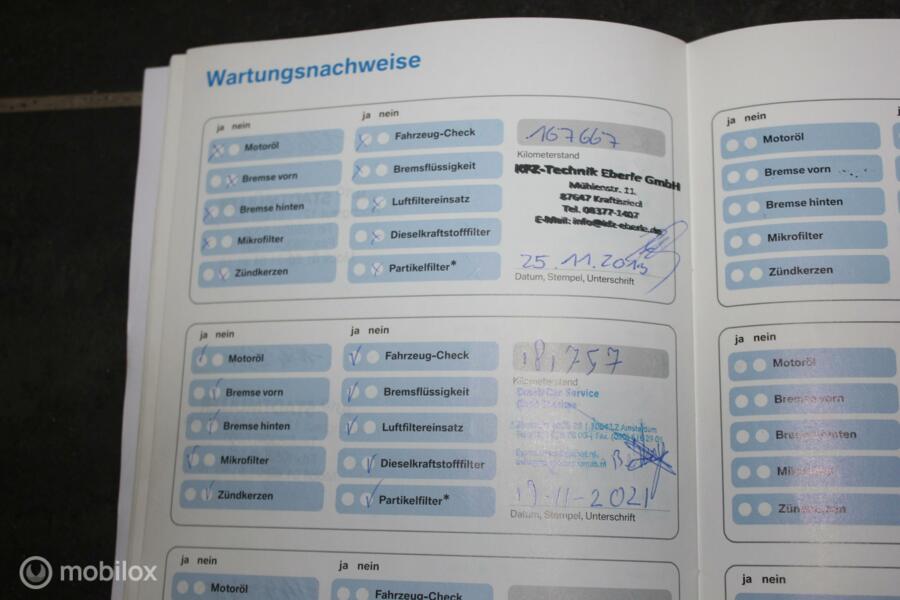 Wartungsnachweise
ja nein
Motoröl
Bremse vorn
Bremse hinten
Mikrofilter
Zündkerzen
ja nein
Fahrzeug-Check
Bremsflüssigkeit
Luftfiltereinsatz
Dieselkraftstofffilter
Partikelfilter*
167667
Kilometerstand
KFZ-Technik Eberle GmbH
Mühlenstr. 11
87647 Kraftisried
Tel. 08377-1407
E-Mail: info@kfz-eberle.de
25.11.2013
Datum, Stempel, Unterschrift
ja nein
Motoröl
Bremse vorn
Bremse hinten
Mikrofilter
Zündkerzen
ja nein
Fahrzeug-Check
Bremsflüssigkeit
Luftfiltereinsatz
Dieselkraftstofffilter
Partikelfilter*
Kilometerstand
Car Service
Amsterdam
19-11-2021
Datum, Stempel, Unterschrift
ja nein
Motoröl
ja nein
Fahrzeug-Check
ja nein
Motoröl
Bremse vorn
Bremse hinten
Mikrofilter
Zündkerzen
ja nein
Motoröl
Bremse vorn
Bremse hinten
Mikrofilter
Zündkerzen
ja nein
mobilox